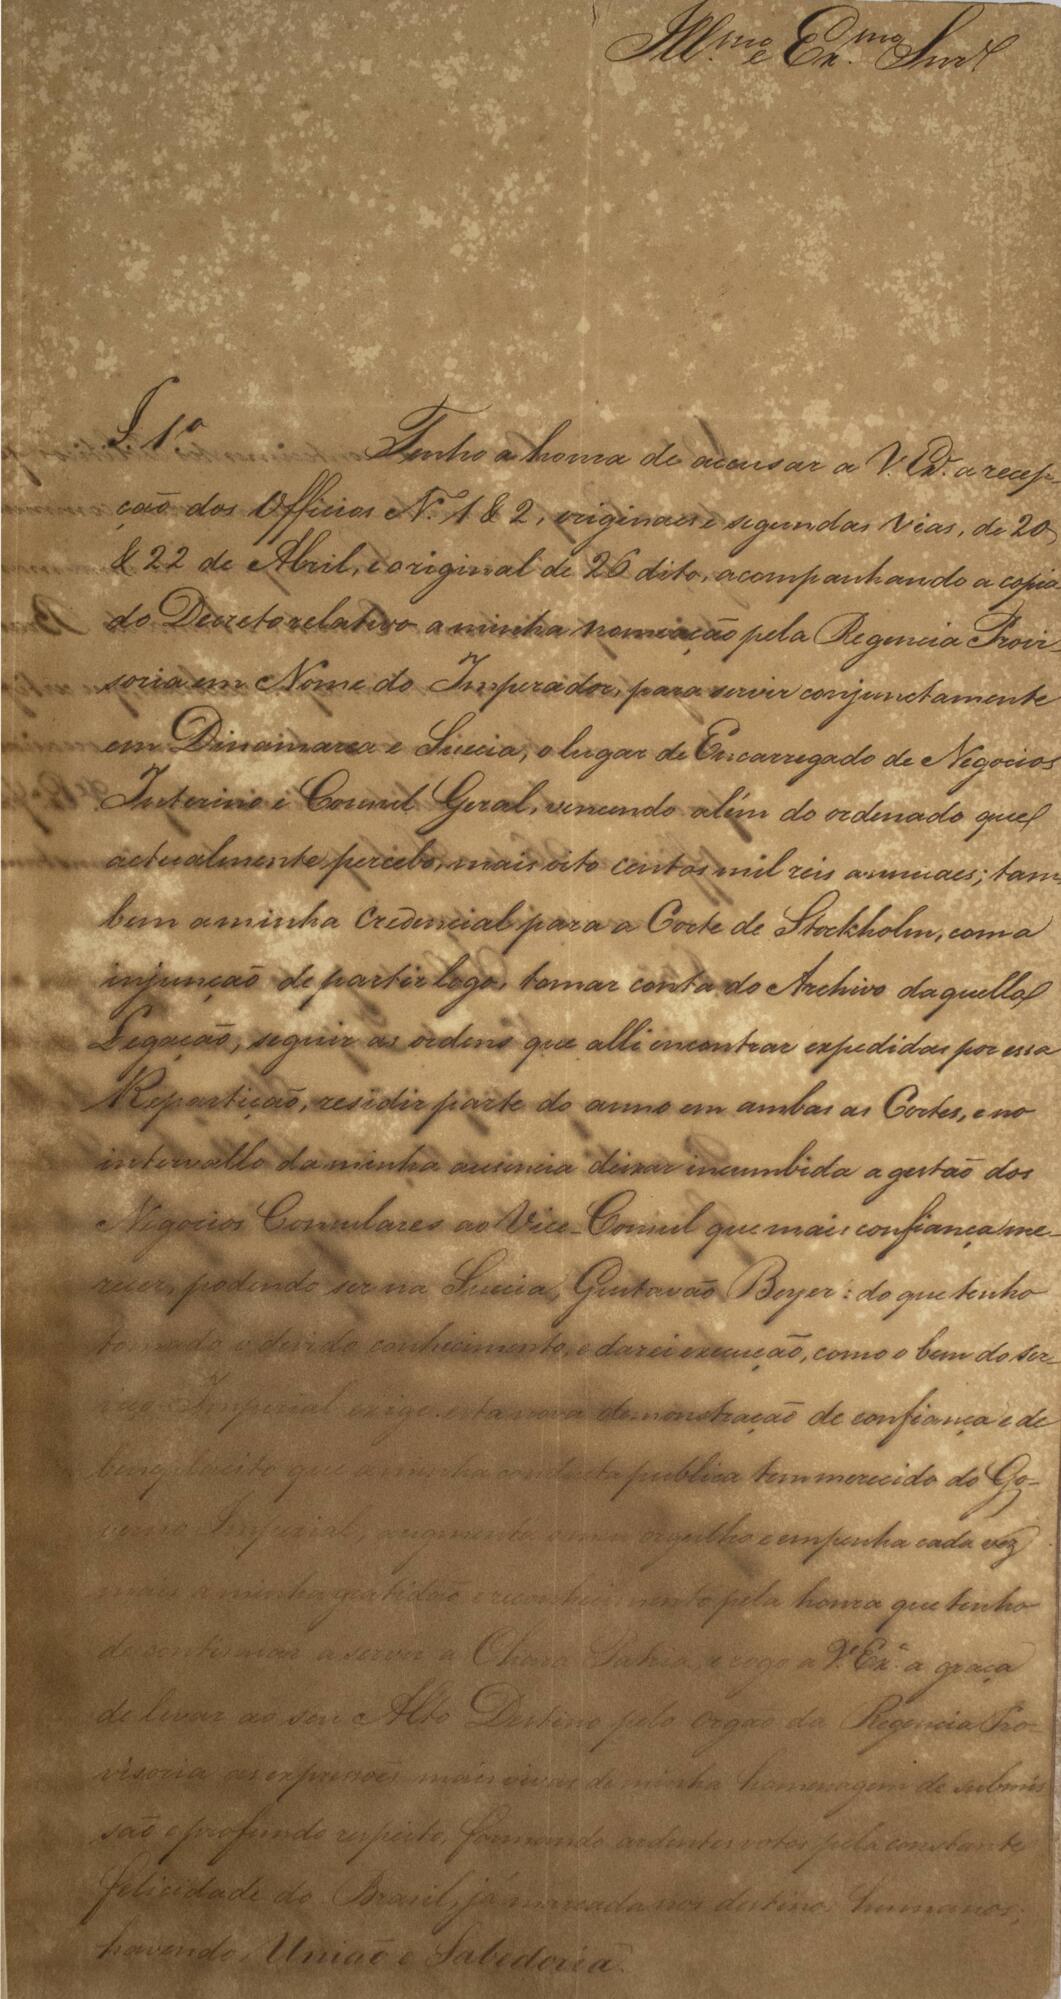 Ill.mo e Ex.mo Snr.
§ 1.º Tenho a honra de accusar a V. Ex.ª a recep-
ção dos Officios N.º 1 & 2, originaes e segundas vias, de 20
& 22 de Abril, e original de 26 dito, acompanhando a copia
do Decreto relativo a minha nomeação pela Regencia Provi-
soria em Nome do Imperador, para servir conjunctamente
em Dinamarca e Suecia, o lugar de Encarregado de Negocios
Interino e Consul Geral, vencendo além do ordenado que
actualmente percebo, mais oito centos mil reis annuaes; tam-
bem a minha Credencial para a Corte de Stockholm, com a
injunção de partir logo, tomar conta do Archivo daquella
Legação, seguir as ordens que alli encontrar expedidas por essa
Repartição, residir parte do anno em ambas as Cortes, e no
intervallo da minha ausencia deixar incumbida a gestão dos
Negocios Consulares ao Vice-Consul que mais confiança me-
recer, podendo ser na Suecia, Gustavão Beyer: do que tenho
tomado o devido conhecimento, e darei execução, como o bem do ser-
viço Imperial exige. esta nova demonstração de confiança e de
beneplacito que a minha conducta publica tem merecido do Go-
verno Imperial, augmenta o meu orgulho e empenha cada vez
mais a minha gratidão e reconhecimento pela honra que tenho
de continuar a servir a Chara Patria, e rogo a V. Ex.ª a graça
de levar ao seu Alto Destino pelo orgão da Regencia Pro-
visoria as expressões mais vivas de minha homenagem de submis-
são e profundo respeito, formando ardentes votos pela constante
felicidade do Brasil, já marcada nos destinos humanos;
havendo, União e Sabedoria.